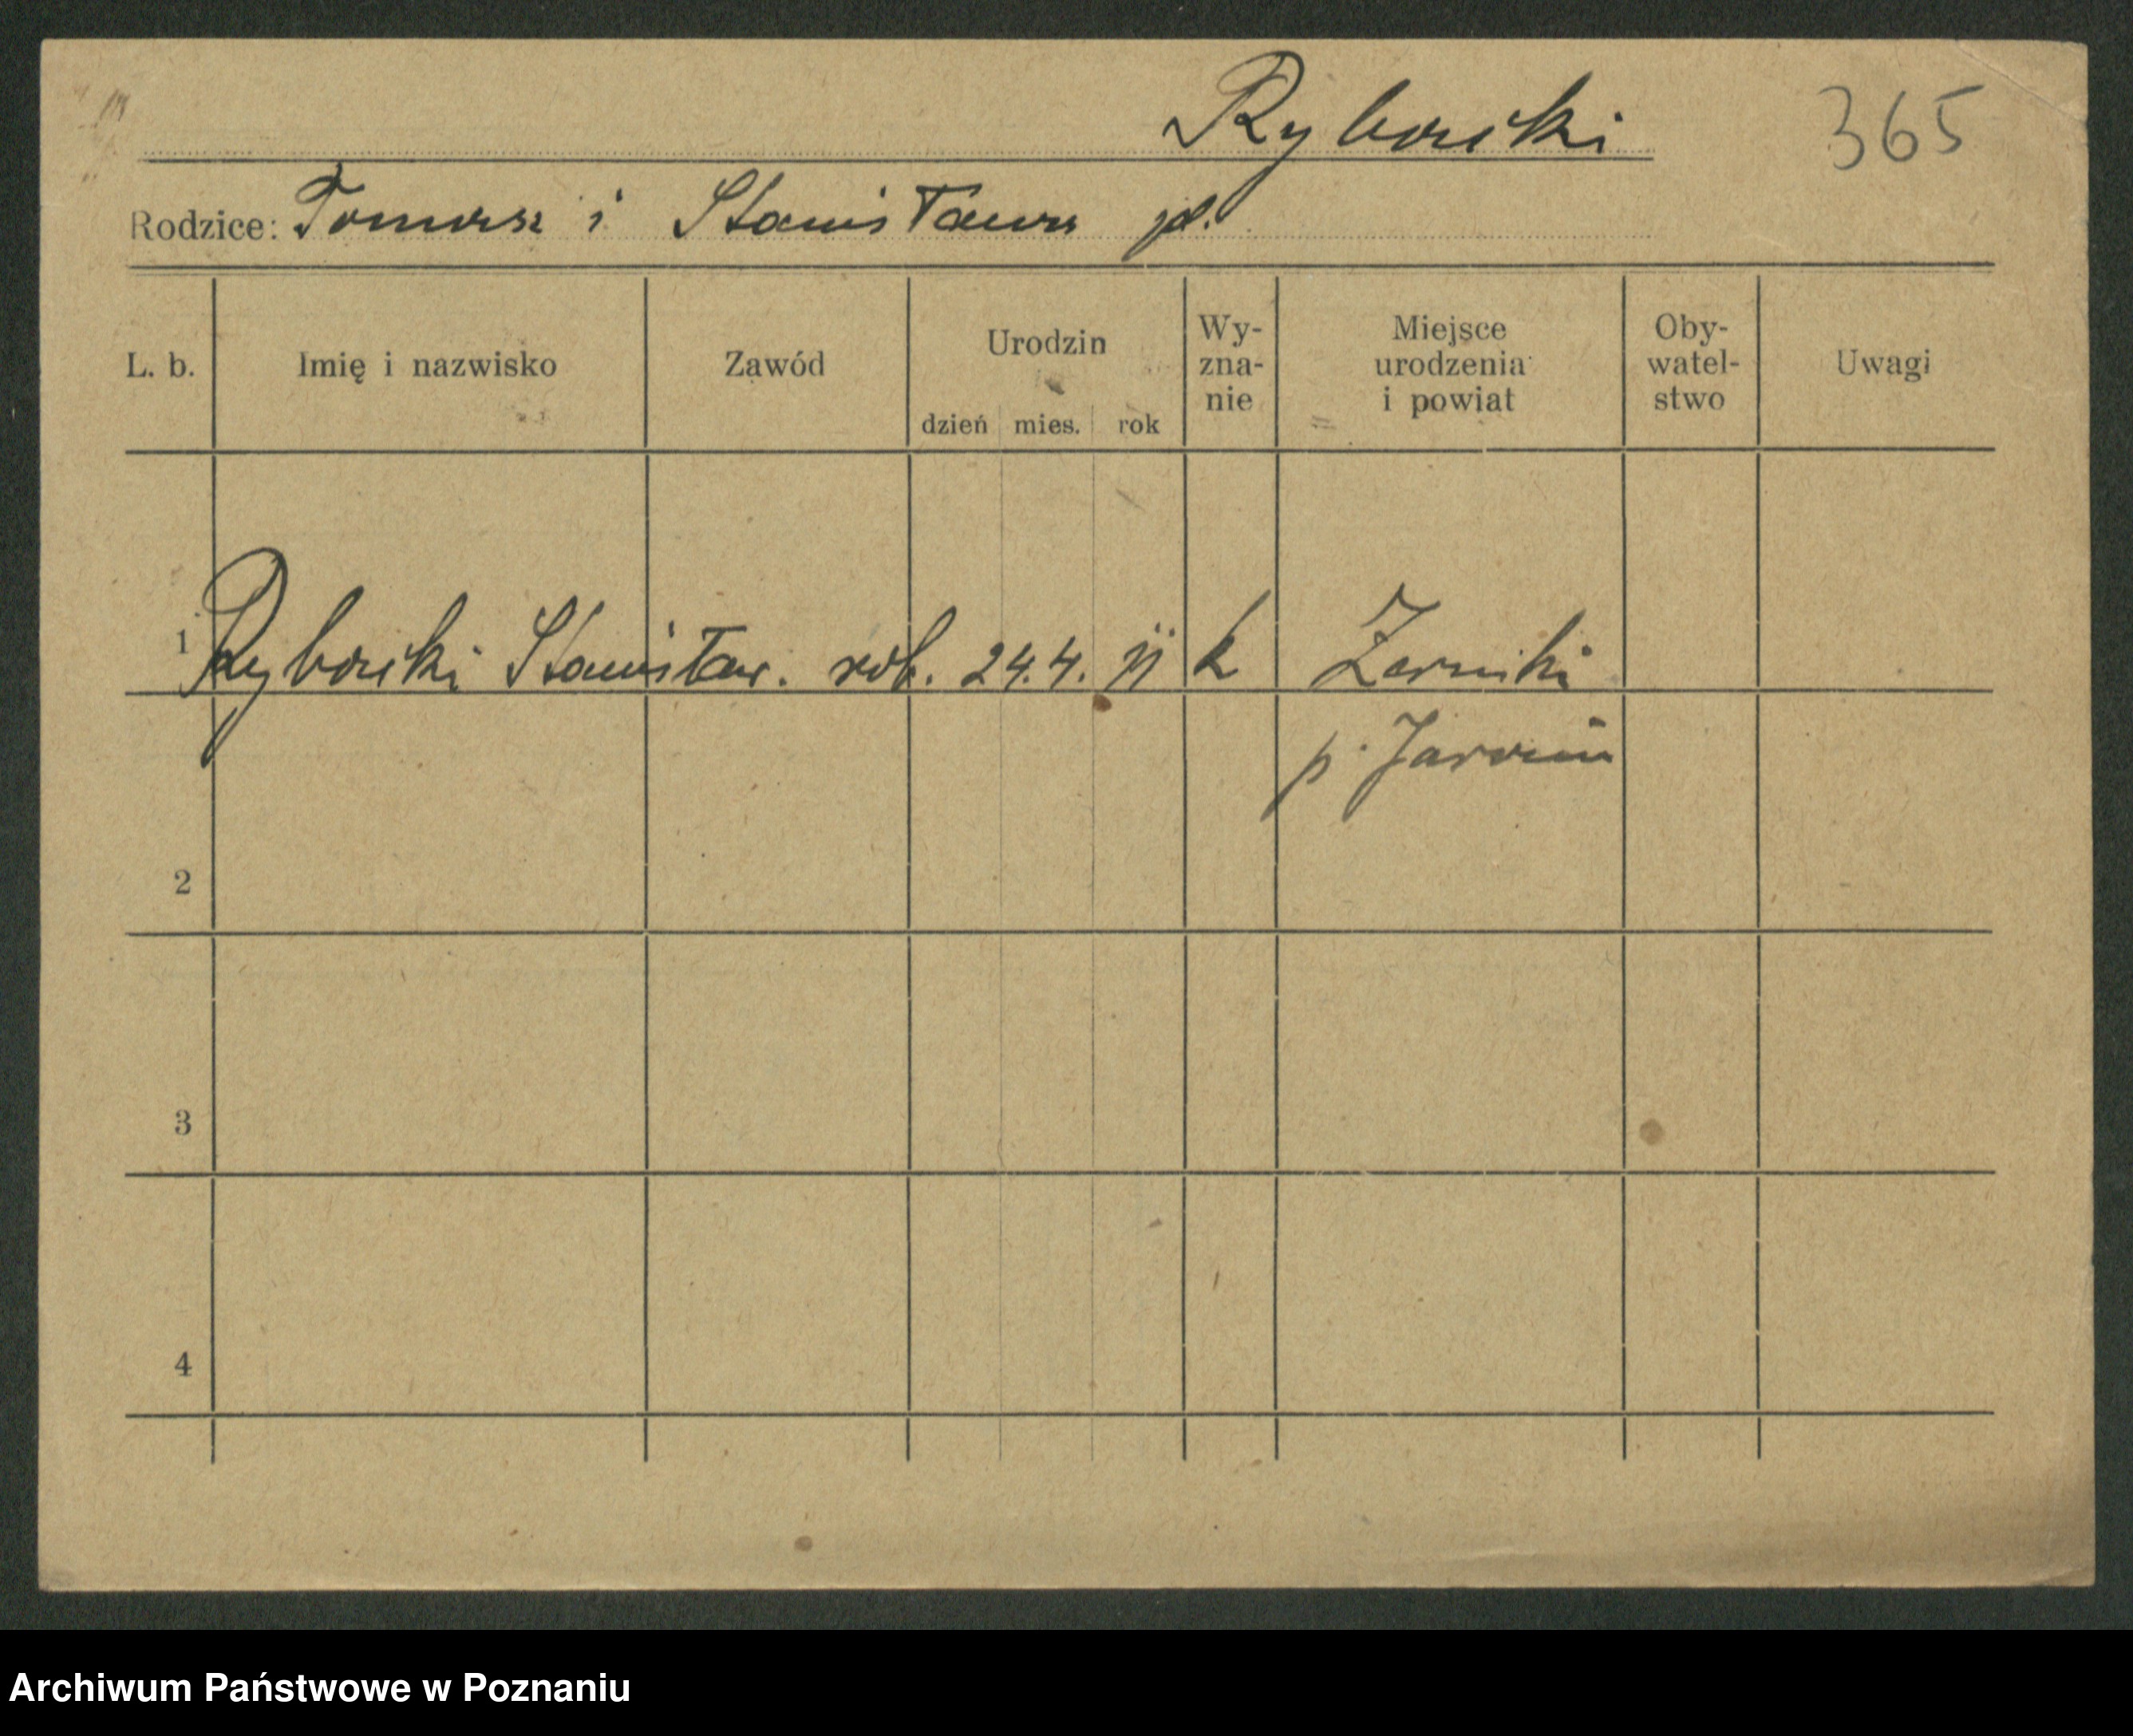 Ryborski
365
Rodzice: Tomasz i Stanisława
L. b.
Imię i nazwisko
Zawód
Urodzin
dzień mies. rok
Wy-
zna-
nie
Miejsce
urodzenia
i powiat
Oby-
watel-
stwo
Uwagi
1 Ryborski Stanisław. rob. 24.4. 11 k Żerniki
p. Jarocin
2
3
4
Archiwum Państwowe w Poznaniu